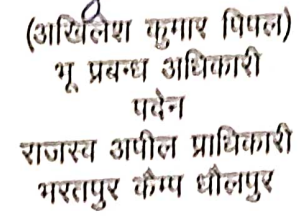 (अखिलेश कुमार पिपल)
भू प्रबन्ध अधिकारी
पदेन
राजस्व अपील प्राधिकारी
भरतपुर कैम्प धौलपुर